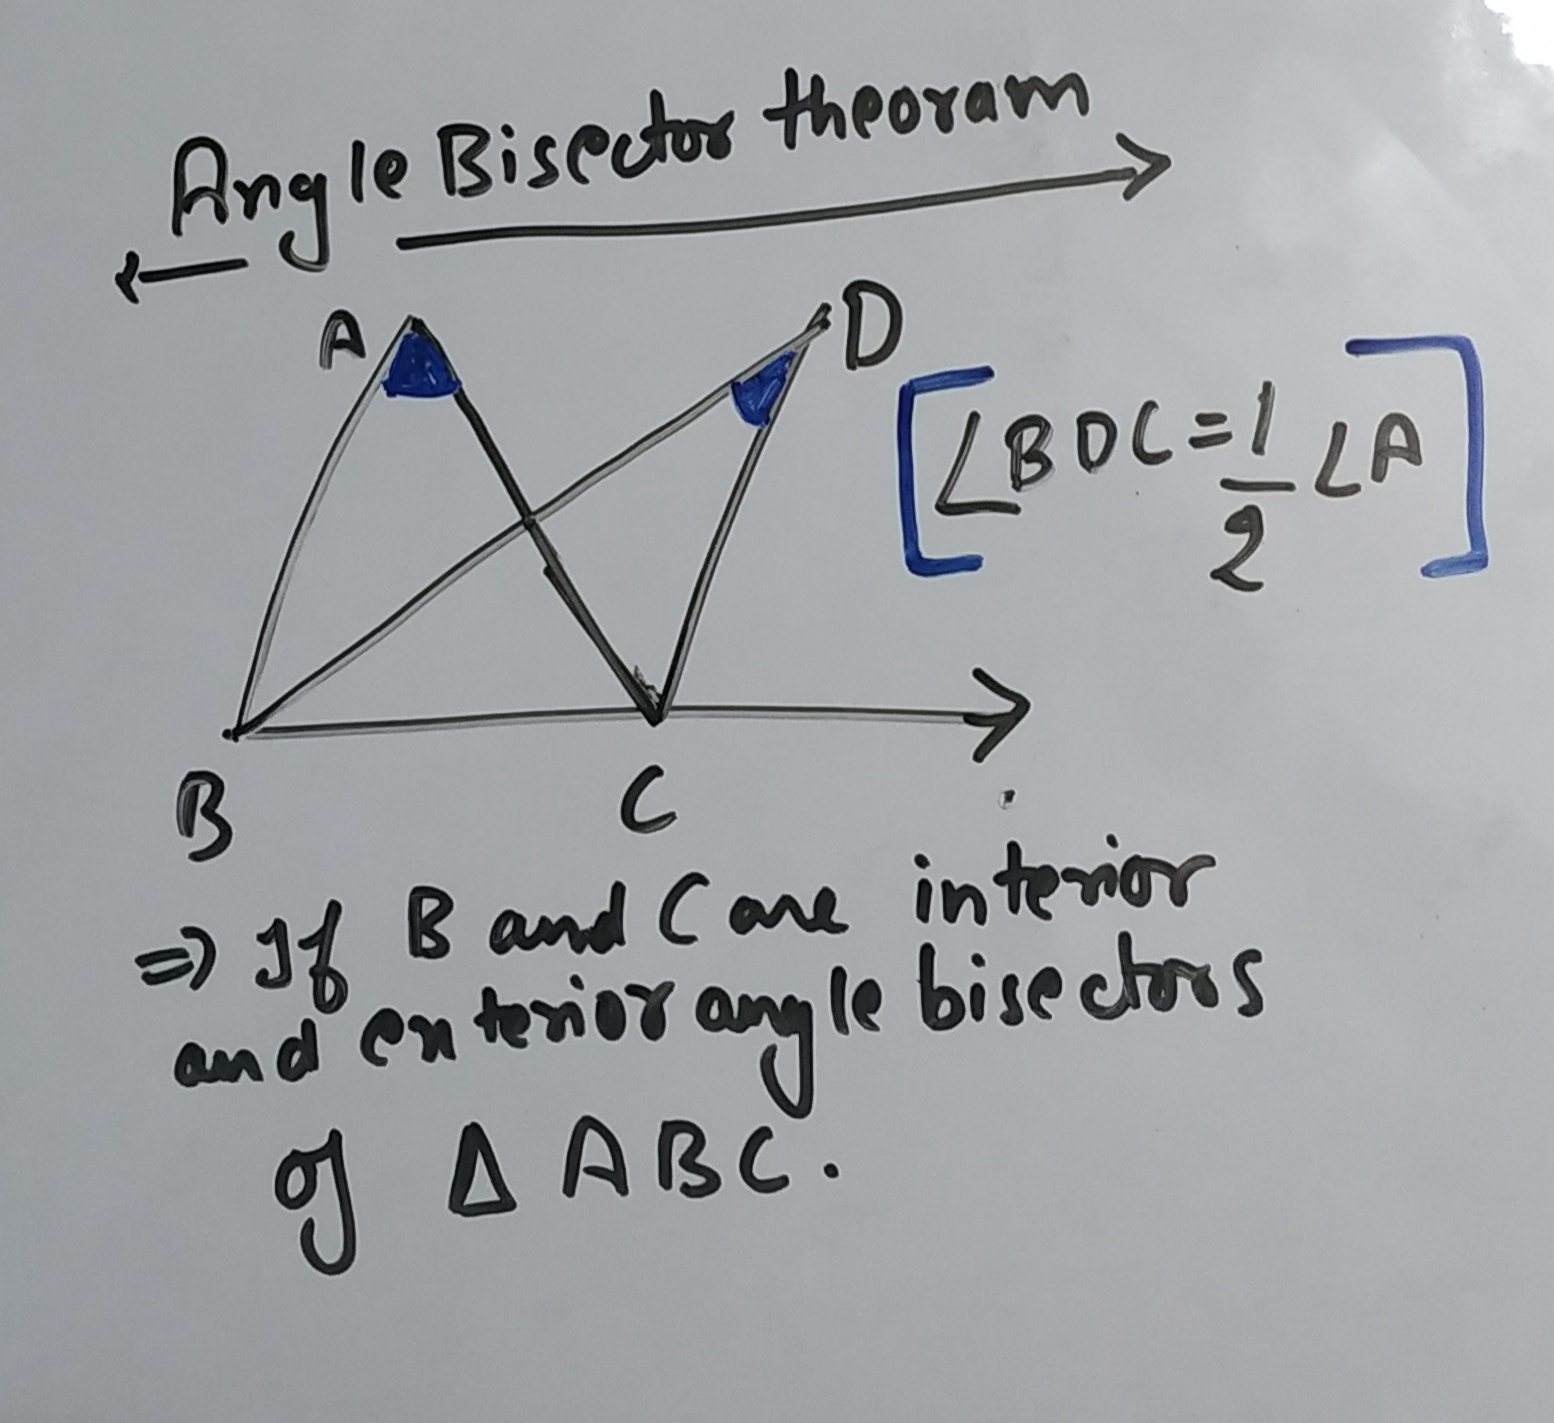 Angle Bisector theoram
A
D
[∠BDC = 1/2 ∠A]
B
C
⇒ If B and C are interior
and exterior angle bisectors
of Δ ABC.